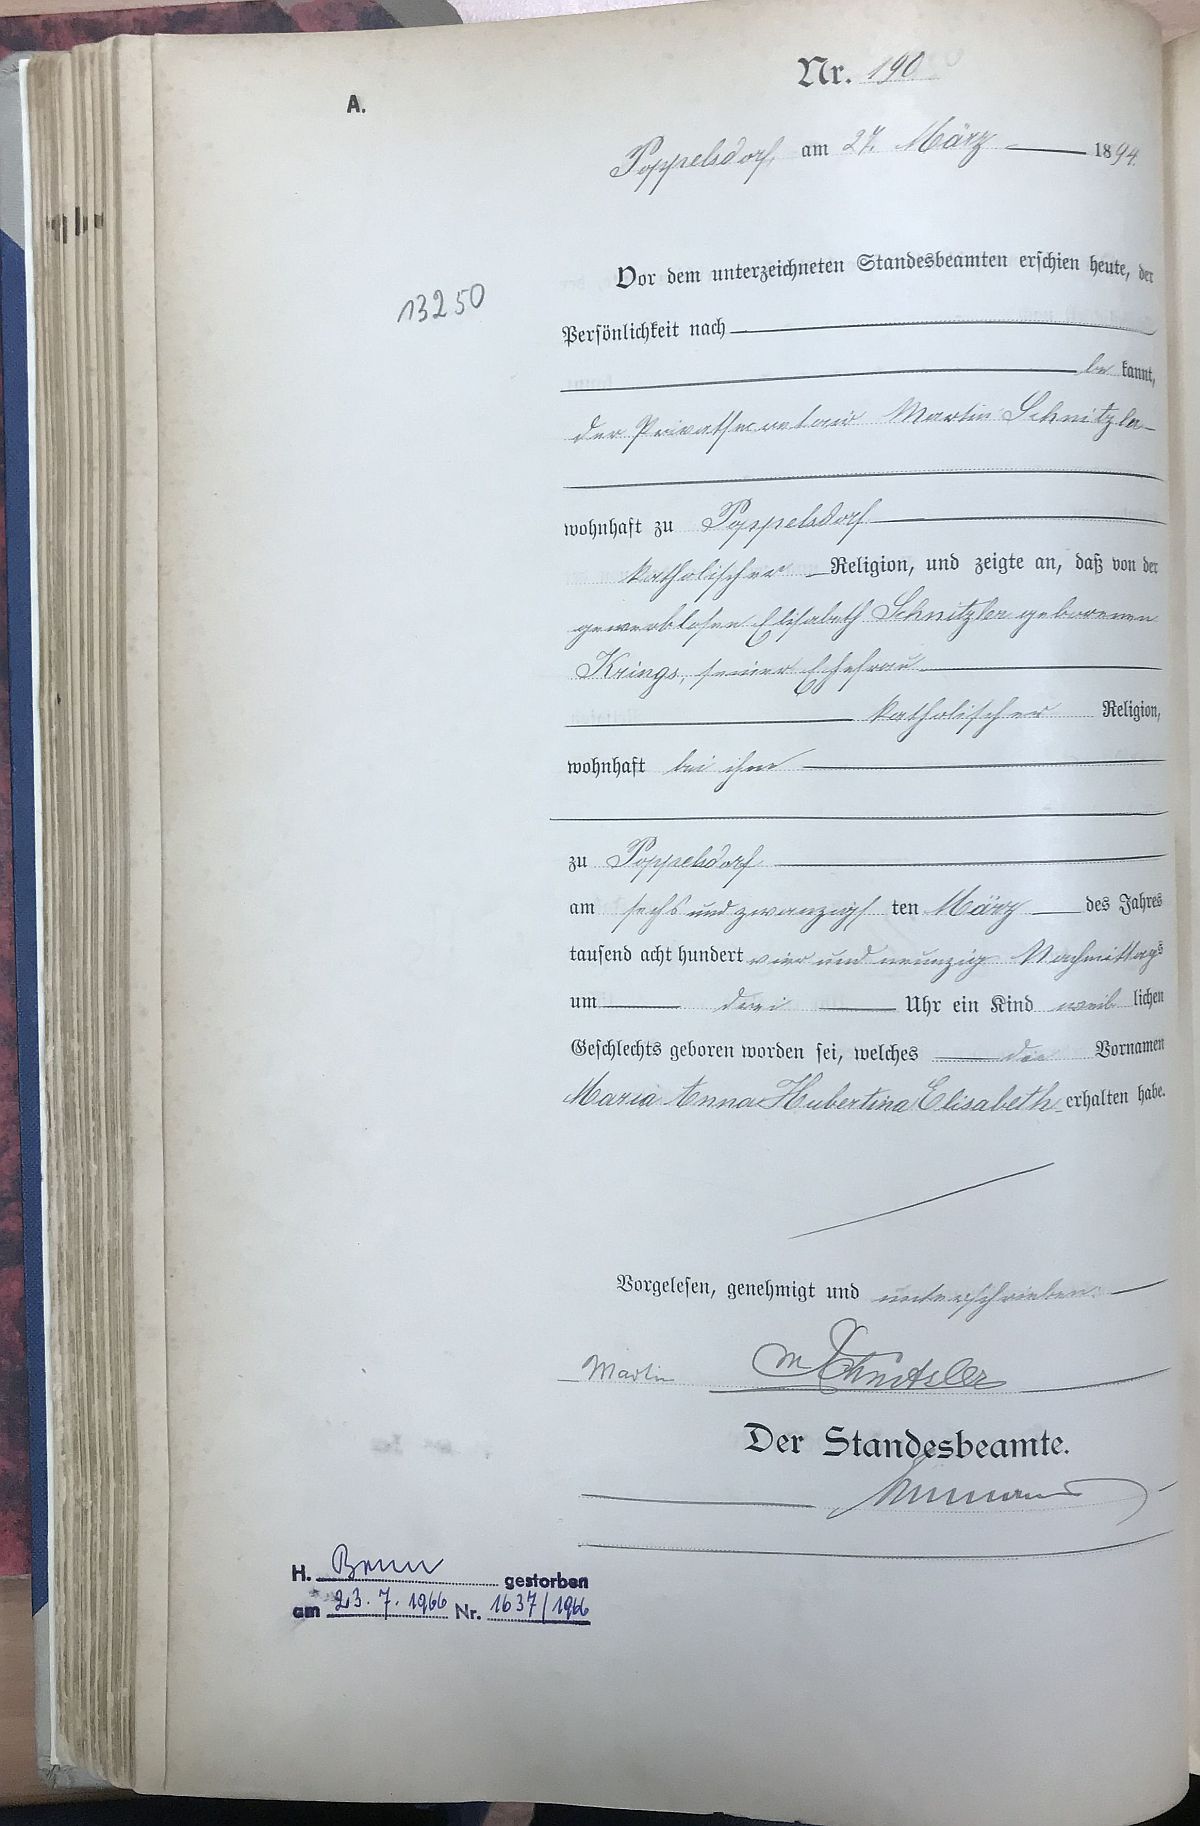 Nr. 190
A.
Poppelsdorf, am 27. März 1894.
Vor dem unterzeichneten Standesbeamten erschien heute, der
13250
Persönlichkeit nach
be kannt,
der Privatsecretair Martin Schnitzler
wohnhaft zu Poppelsdorf
katholischer Religion, und zeigte an, daß von der
gewerblosen Elisabeth Schnitzler geborenen
Krings, seiner Ehefrau
katholischer Religion,
wohnhaft bei ihm
zu Poppelsdorf
am sechs und zwanzigs ten März des Jahres
tausend acht hundert vier und neunzig Nachmittags
um drei Uhr ein Kind weib lichen
Geschlechts geboren worden sei, welches die Vornamen
Maria Anna Hubertina Elisabeth erhalten habe.
Vorgelesen, genehmigt und unterschrieben:
Martin M Schnitzler
Der Standesbeamte.
H. Bonn gestorben
am 23. 7. 1966 Nr. 1637/1966